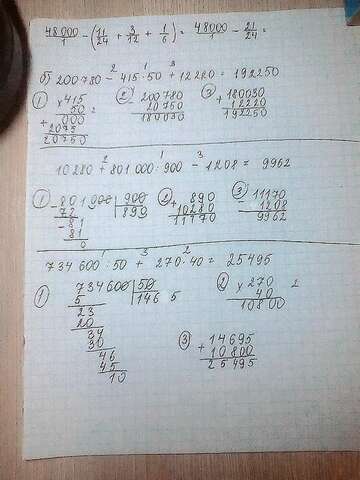 48000/1 - (11/24 + 3/12 + 1/6) = 48000/1 - 21/24 =
б) 200780 - 415·50 + 12220 = 192250
2 1 3
1 × 415
50 =
000
+ 2075
20750
2 - 200780
20750
180030
3 + 180030
12220
192250
10280 + 801000:900 - 1208 = 9962
2 1 3
1 - 801000 | 900
72 | 890
- 81
81
0
2 + 890
10280
11170
3 - 11170
1208
9962
734600:50 + 270·40 = 25495
1 3 2
1 734600 | 50
5 | 1465
23
20
34
30
46
45
10
2 × 270
40
10800
3 + 14695
10800
25495